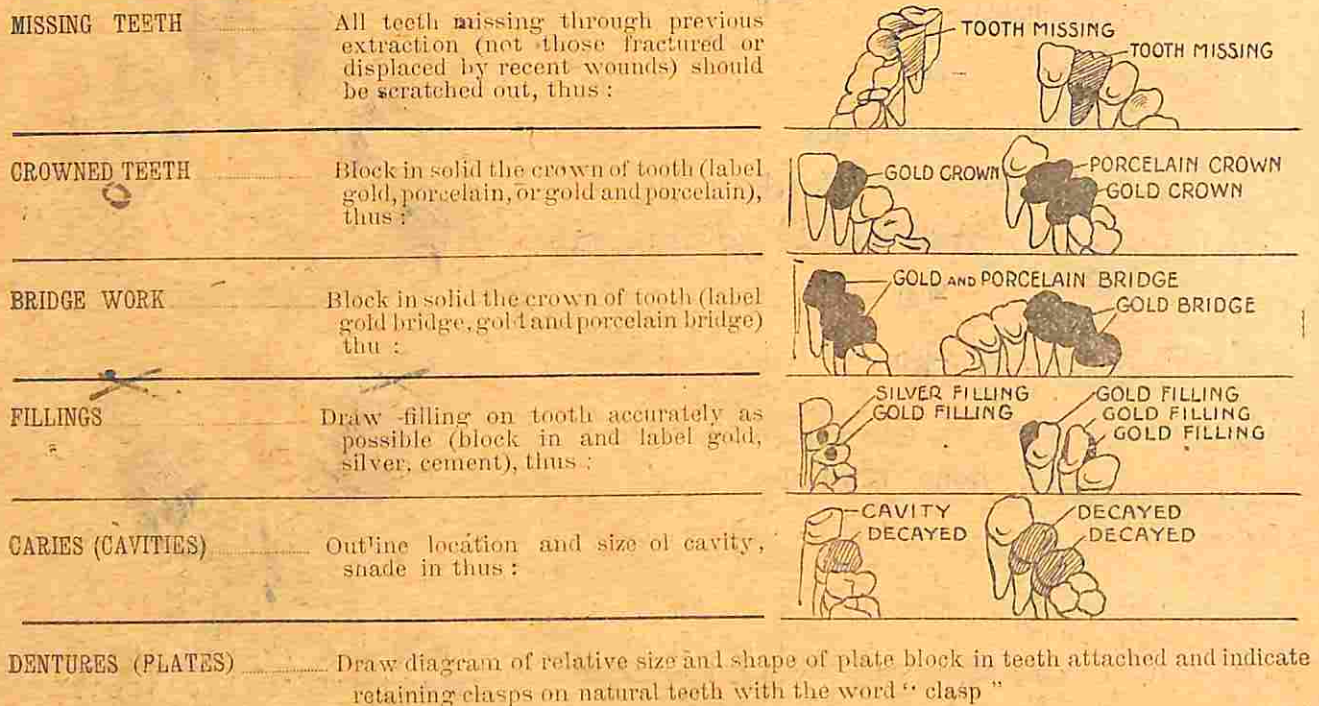 MISSING TEETH All teeth missing through previous
extraction (not those fractured or
displaced by recent wounds) should
be scratched out, thus :
TOOTH MISSING
TOOTH MISSING
CROWNED TEETH Block in solid the crown of tooth (label
gold, porcelain, or gold and porcelain),
thus :
GOLD CROWN
PORCELAIN CROWN
GOLD CROWN
BRIDGE WORK Block in solid the crown of tooth (label
gold bridge, gold and porcelain bridge)
thu :
GOLD AND PORCELAIN BRIDGE
GOLD BRIDGE
FILLINGS Draw filling on tooth accurately as
possible (block in and label gold,
silver, cement), thus :
SILVER FILLING
GOLD FILLING
GOLD FILLING
GOLD FILLING
GOLD FILLING
CARIES (CAVITIES) Outline location and size of cavity,
snade in thus :
CAVITY
DECAYED
DECAYED
DECAYED
DENTURES (PLATES) Draw diagram of relative size and shape of plate block in teeth attached and indicate
retaining clasps on natural teeth with the word “ clasp ”